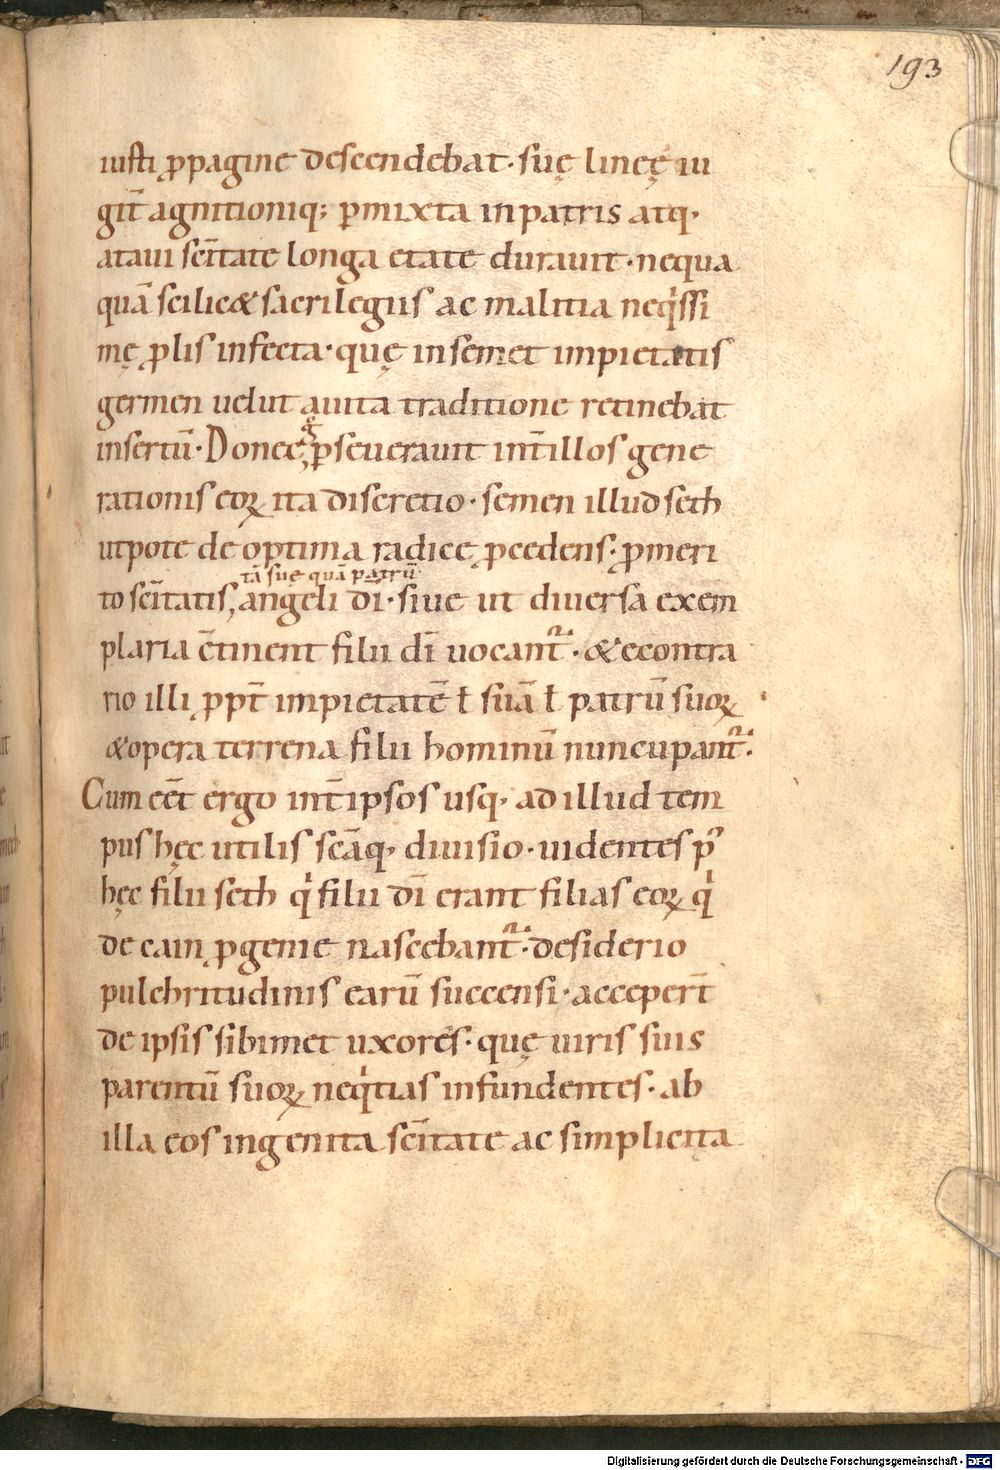 193
iusti ꝓpagine descendebat· suę lineę iu
git̄ agnitioniq; ꝑmixta in patris atq·
ataui sc̄itate longa etate durauit· nequa
quā scilic& sacrilegiis ac malitia neqͥssi
mę ꝓlis infecta· quę in semet impietatis
germen uelut auita traditione retinebat
insertū· Donec g̊ ꝑseuerauit int̄ illos gene
rationis eoꝝ ita discretio· semen illud seth
utpote de optima radice ꝓcedens· ꝓ meri
tā suę quā patrū·
to sc̄itatis, angeli dī· siue ut diuersa exem
plaria c̄tinent filii dī uocant᷑· & econtra
rio illi ꝓpt̄ impietatē ł suā ł patrū suoꝝ
& opera terrena filii hominū nuncupant᷑·
Cum ēet ergo int̄ ipsos usq· ad illud tem
pus hęc utilis sc̄aq· diuisio· uidentes pꝰ
hęc filii seth qͥ filii dī erant filias eoꝝ qͥ
de cain ꝓgenie nascebant᷑· desiderio
pulchritudinis earū succensi· accepert̄
de ipsis sibimet uxores· quę uiris suis
parentū suoꝝ neqͥtias infundentes· ab
illa eos ingenita sc̄itate ac simplicita
Digitalisierung gefördert durch die Deutsche Forschungsgemeinschaft - DFG